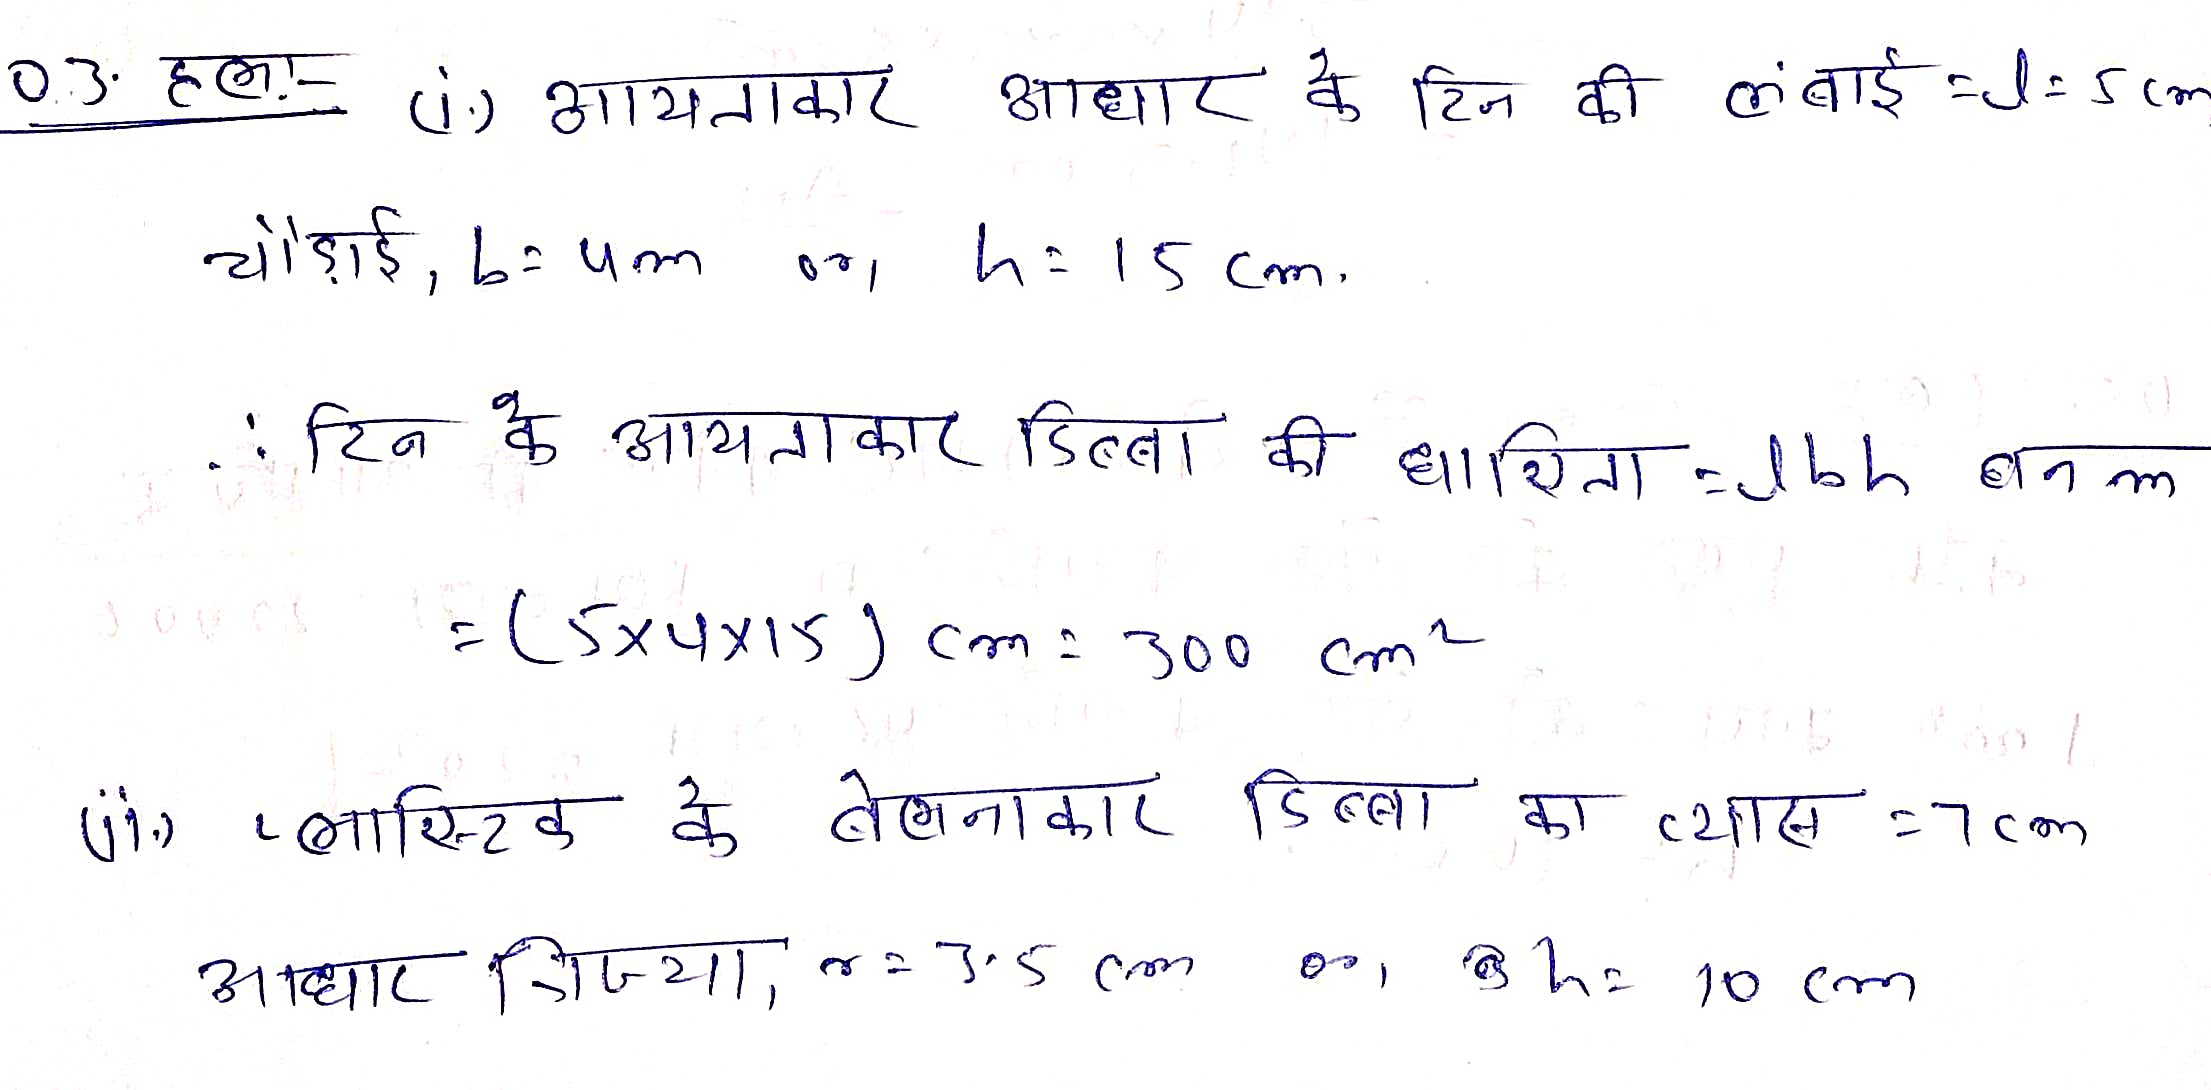 Q.3. हल:- (i.) आयताकार आधार के टिन की लंबाई = l = 5 cm
चौड़ाई, b = 4 m or, h = 15 cm.
∴ टिन के आयताकार डिब्बा की धारिता = lbh घन m
= (5x4x15) cm = 300 cm²
(ii.) प्लास्टिक के बेलनाकार डिब्बा का व्यास = 7 cm
आधार त्रिज्या, r = 3.5 cm or, h = 10 cm